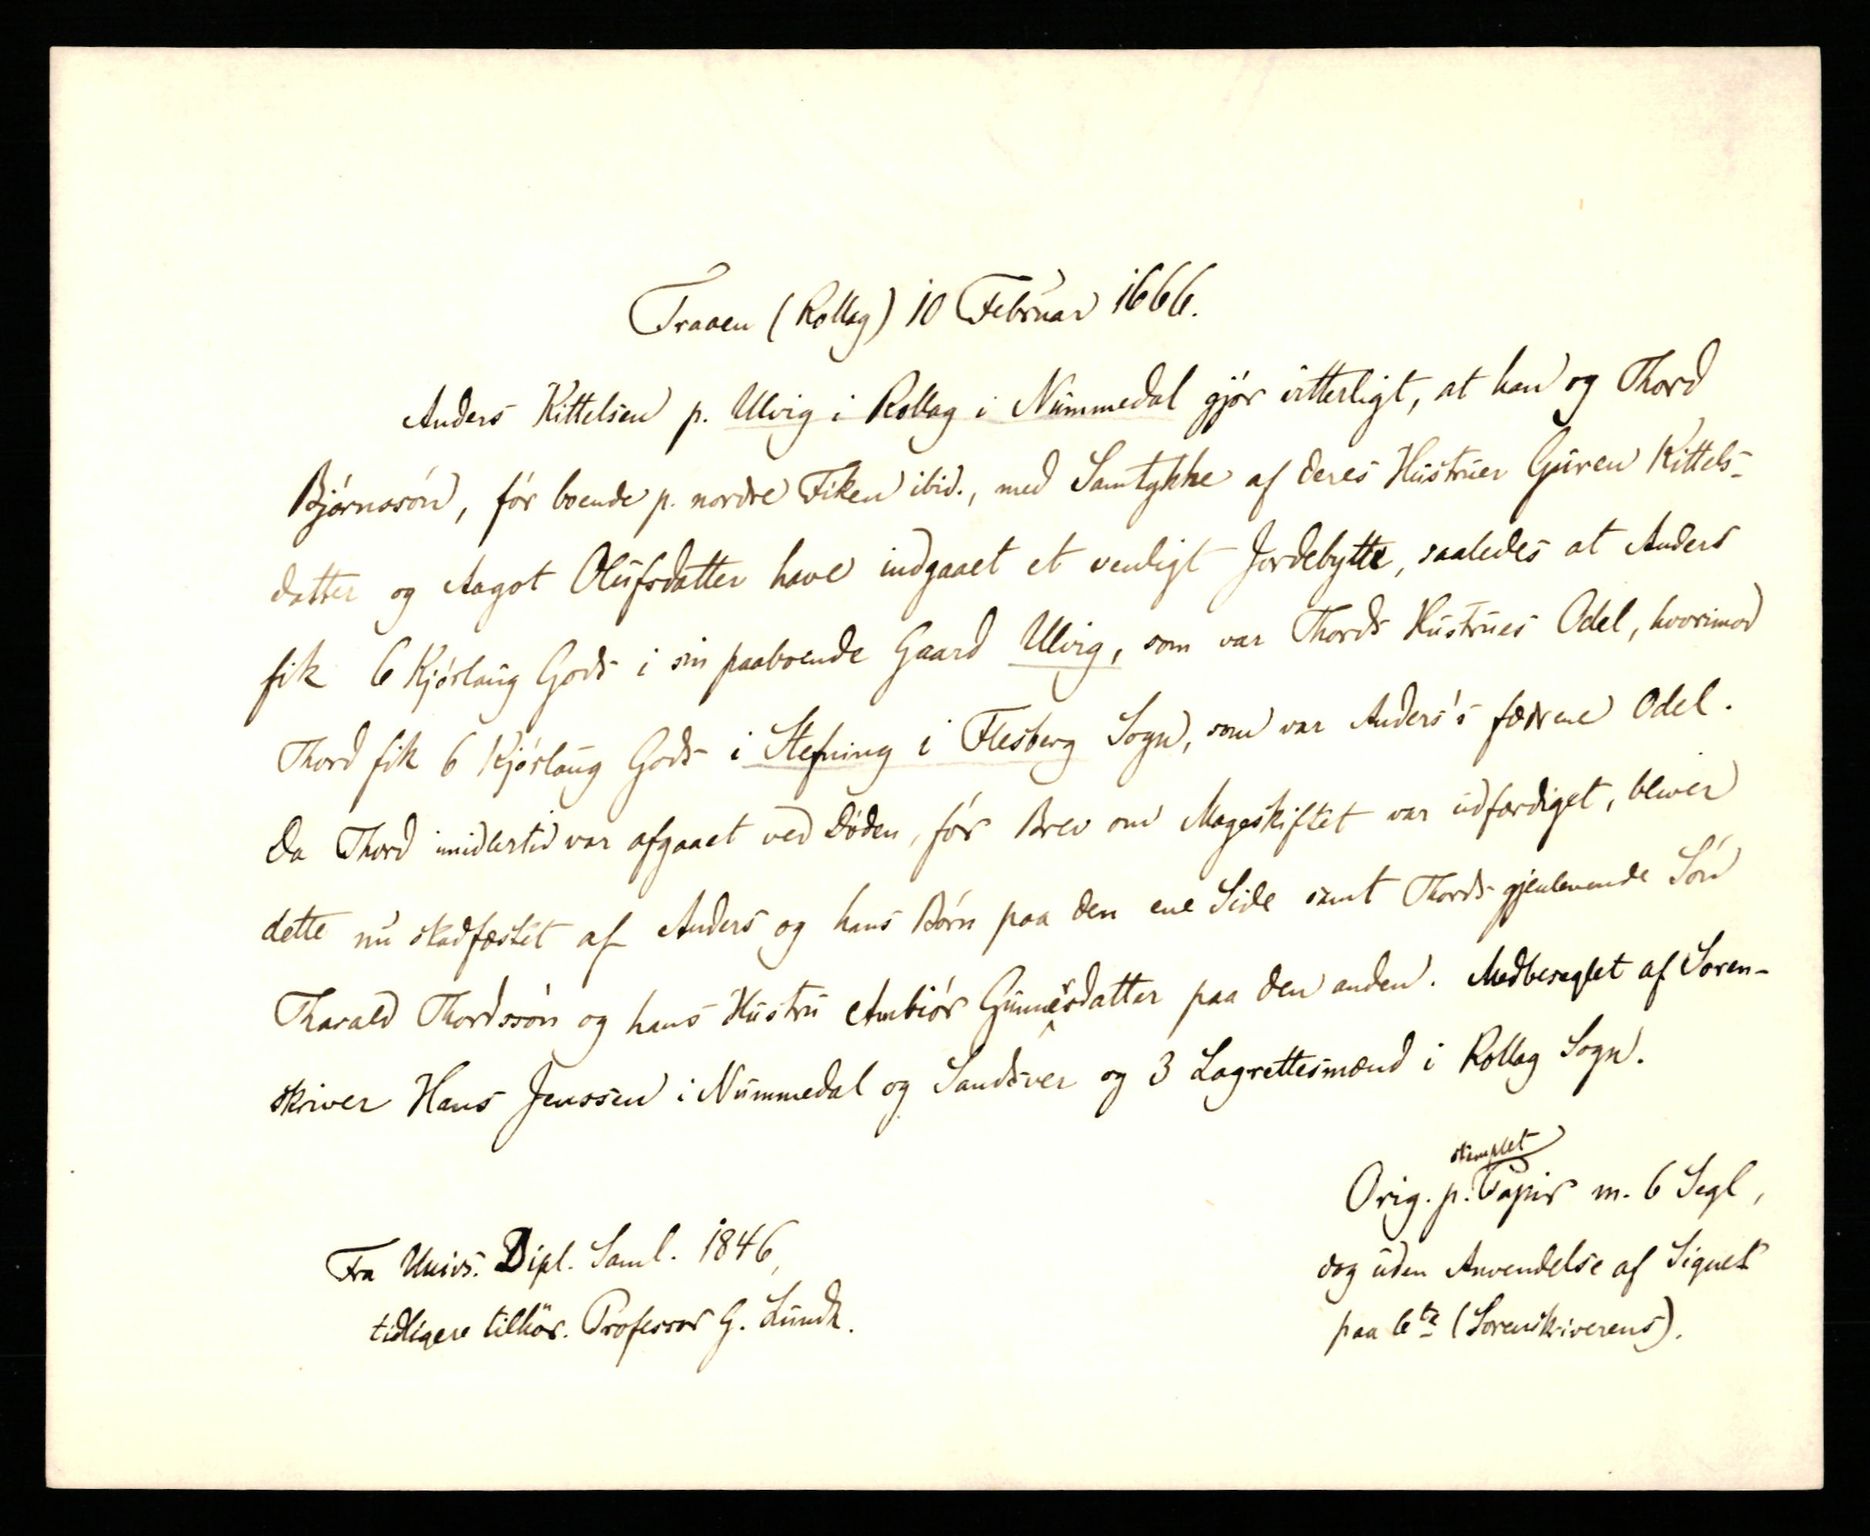 Traaen (Rollag) 10 Februar 1666.
Anders Kittelsen p. Ulvig i Rollag i Nummedal gjør vitterligt, at han og Thord
Bjørnssøn, før boende p. nordre Fiken ibid., med Samtykke af deres Hustruer Guren Kittels-
datter og Aagot Olufsdatter have indgaaet et venligt Jordebytte, saaledes at Anders
fik 6 Kjørlaug Gods i sin paaboende Gaard Ulvig, som var Thords Hustrues Odel, hvorimod
Thord fik 6 Kjørlaug Gods i Stefning i Flesberg Sogn, som var Anders's fædrene Odel.
Da Thord imidlertid var afgaaet ved Døden, før Brev om Mageskiftet var udfærdiget, bliver
dette nu stadfæstet af Anders og hans Børn paa den ene Side samt Thords gjenlevende Søn
Tharald Thordssøn og hans Hustru Ambiør Gunnersdatter paa den anden. Medbeseglet af Soren-
skriver Hans Jenssen i Nummedal og Sandsver og 3 Lagrettesmænd i Rollag Sogn.
stemplet
Orig. p. Papir m. 6 Segl,
dog uden Anvendelse af Signet
paa 6te (Sorenskriverens).
Fra Univs. Dipl. Saml. 1846,
tidligere tilhør. Professor G. Lundh.